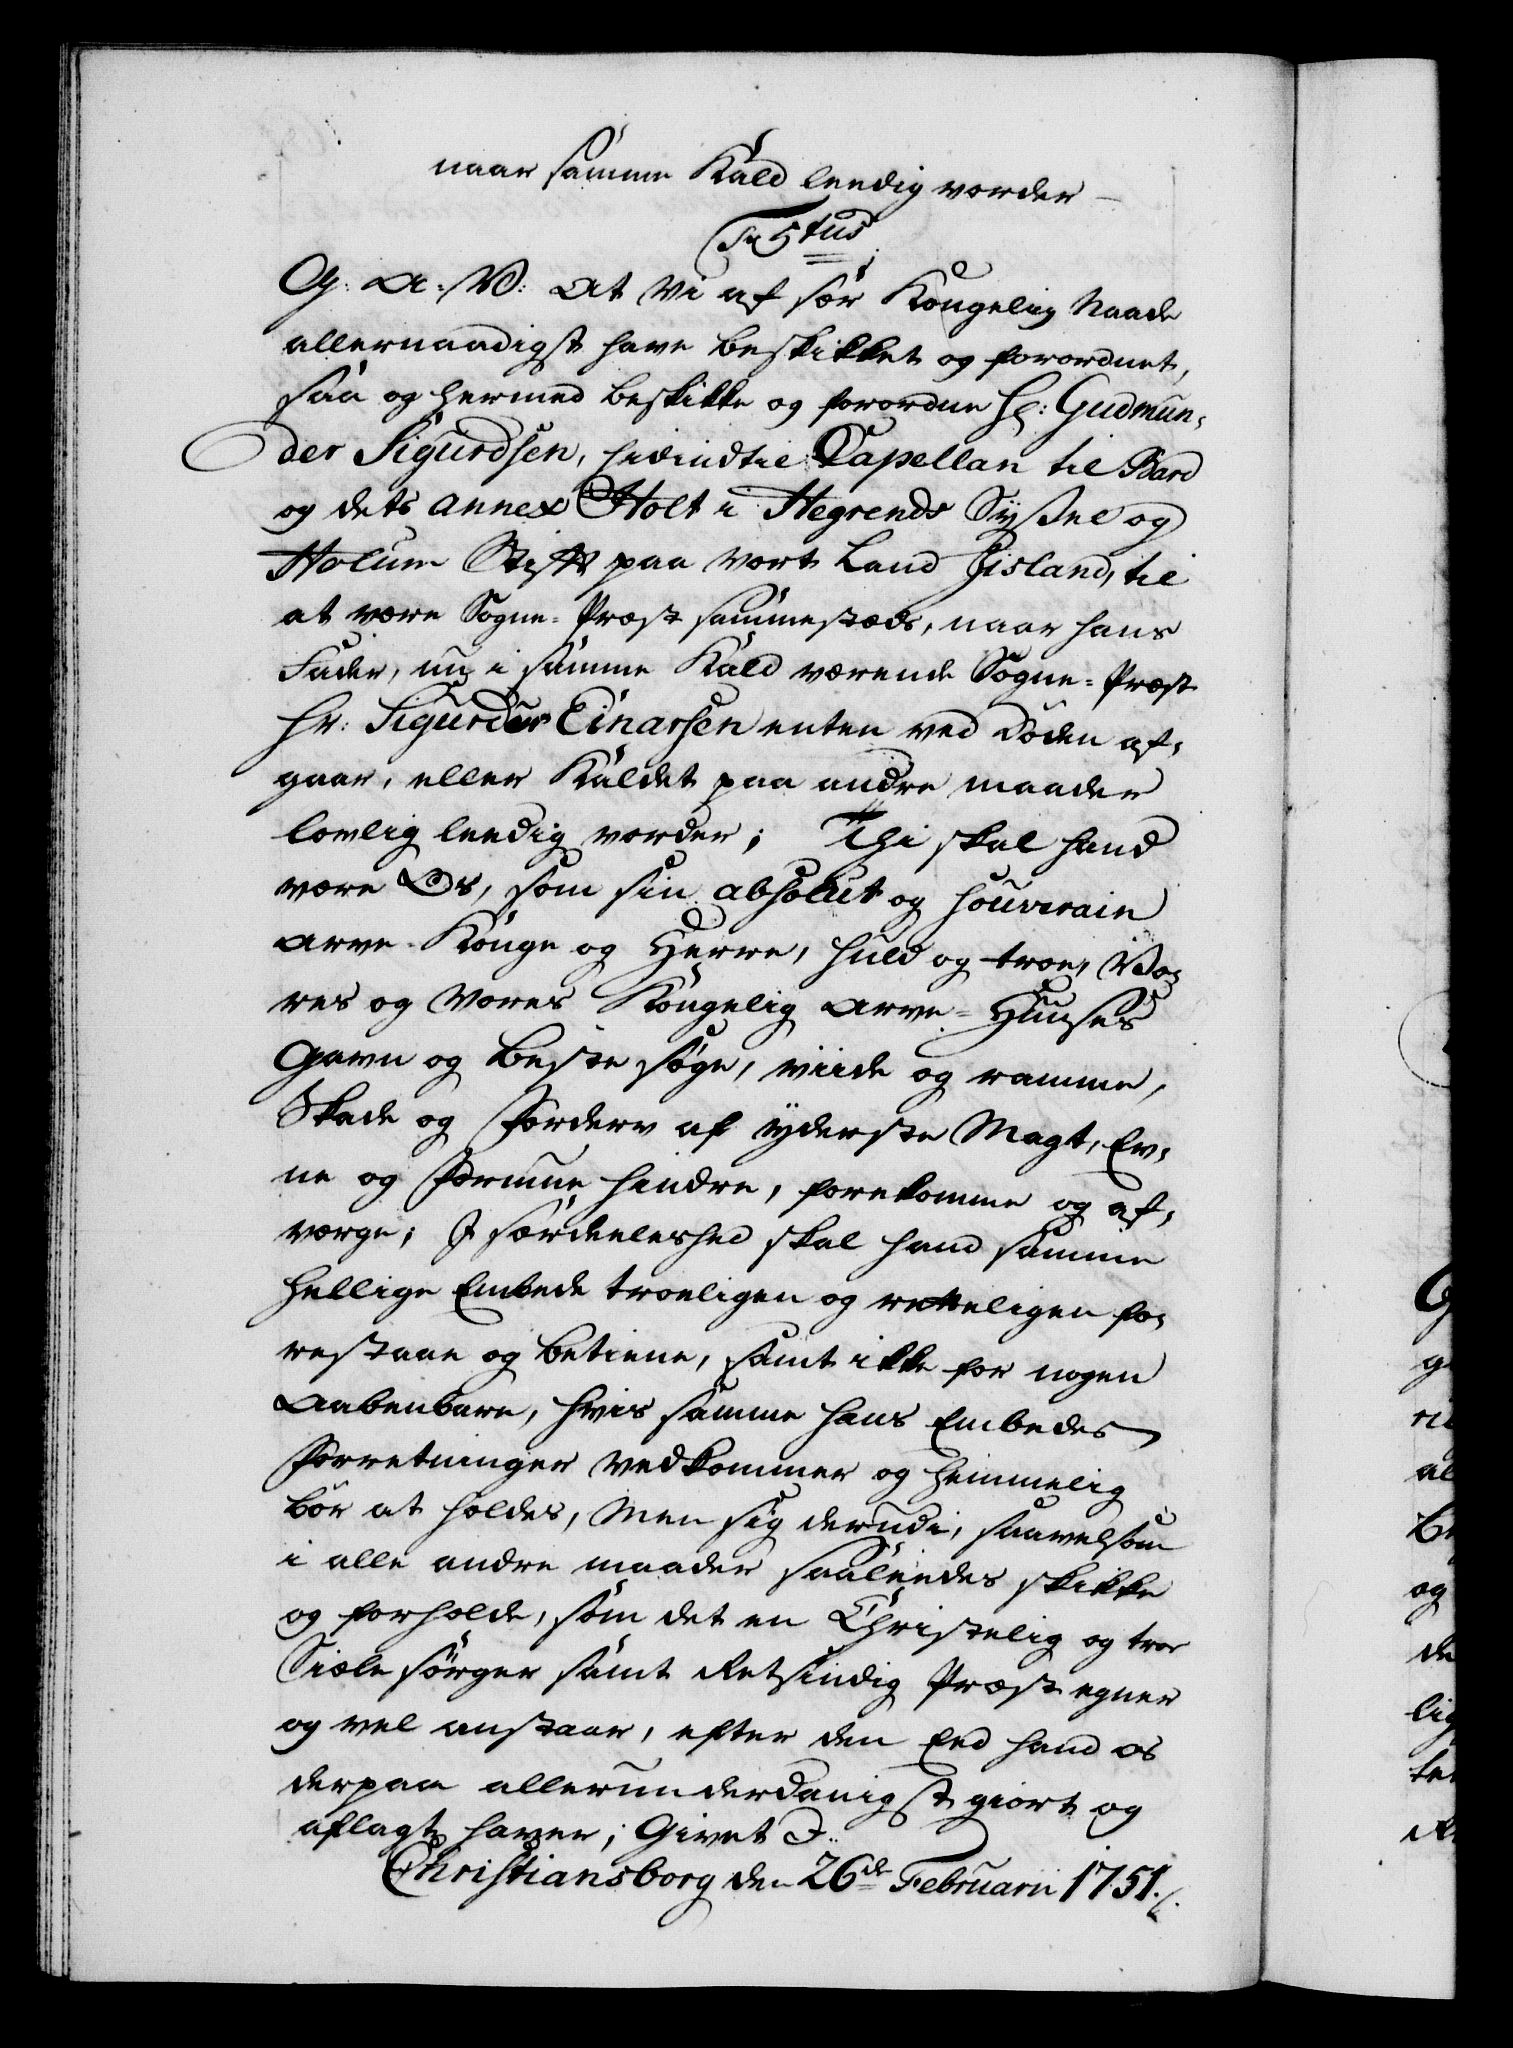 naar samme Kald leedig vorder
Fr 5tus
G: A: V: At Vi af sær Kongelig Naade
allernaadigst have beskikket og forordnet,
saa og hermed beskikke og forordne Hr: Gudmun-
der Sigurdsen, hidindtil Capellan til Bard
og dets annex Holt i Hegrends Syssel og
Holum Stift paa vort Land Jisland, til
at være Sogne-Præst sammestæds, naar hans
Fader, nu i samme Kald værende Sogne-Præst
Hr: Sigurdur Einarsen enten ved Døden af-
gaar, eller Kaldet paa andre maader
lovlig leedig vorder; Thi skal hand
være Os, som sin absolut og souverain
Arve-Konge og Herre, huld og troe, Vo-
res og Vores Kongelig Arve-Huuses
Gavn og Beste søge, viide og ramme,
Skade og Forderv af yderste Magt, Ev-
ne og Formue hindre, forekomme og af-
værge; I særdeeleshed skal hand samme
hellige Embede troeligen og retteligen fo-
restaae og betiene, samt ikke for nogen
aabenbare, hvis samme hans Embedes
Forretninger vedkommer og hemmelig
bør at holdes, Men sig derudi, saavelsom
i alle andre maader saaleedes skikke
og forholde, som det en Christelig og troe
Siæle sørger samt Retsindig Præst egner
og vel anstaar, efter den Eed hand os
derpaa allerunderdanigst giort og
aflagt haver; Givet J..
Christiansborg den 26de Februarii 1751./.